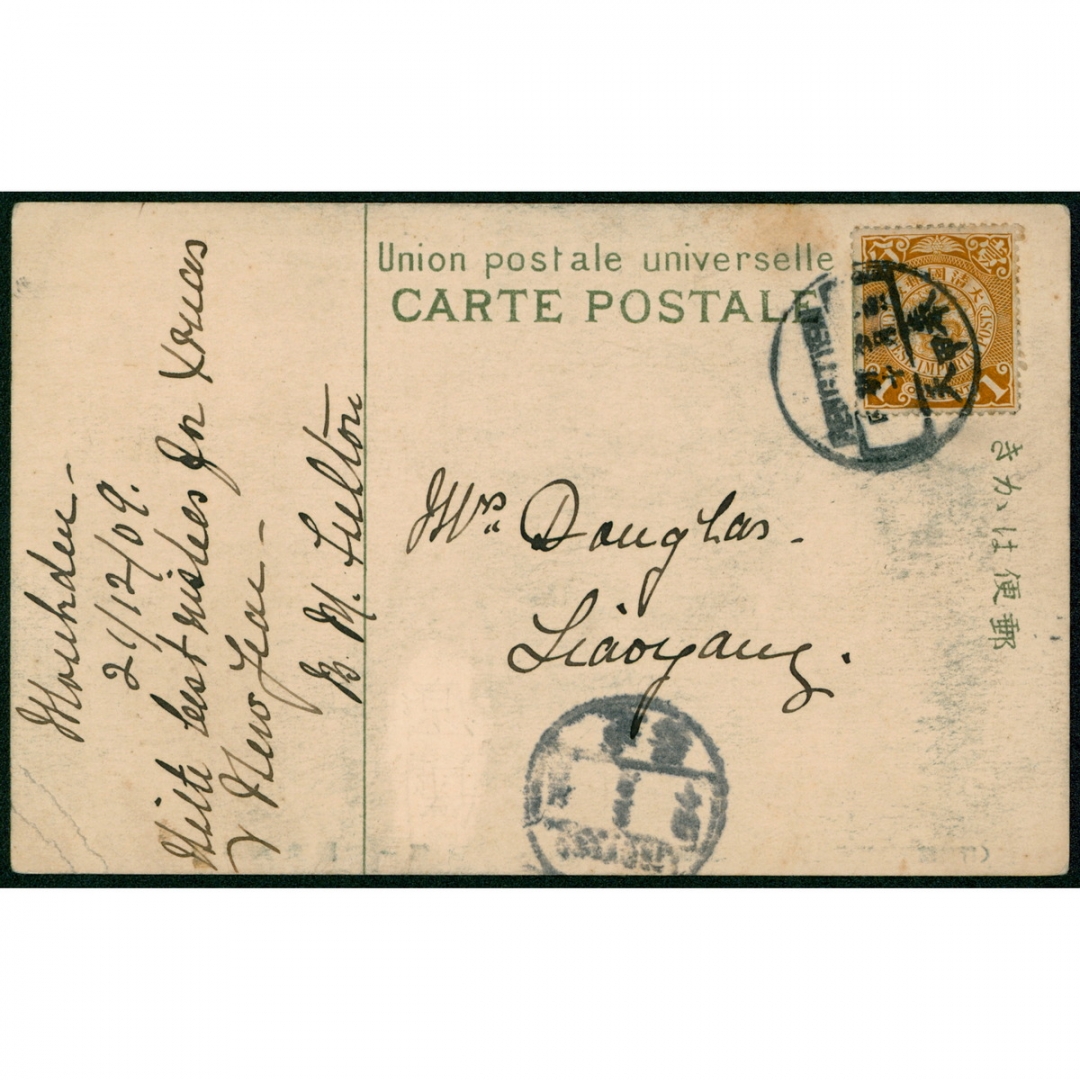 Moukden –
21/12/09.
With best wishes for Xmas
& New Year –
B. M. Fulton
Union postale universelle
CARTE POSTALE
Mrs Douglas –
Liaoyang.
きかは便郵
大清國
IMPERIAL POST
1
1
奉天